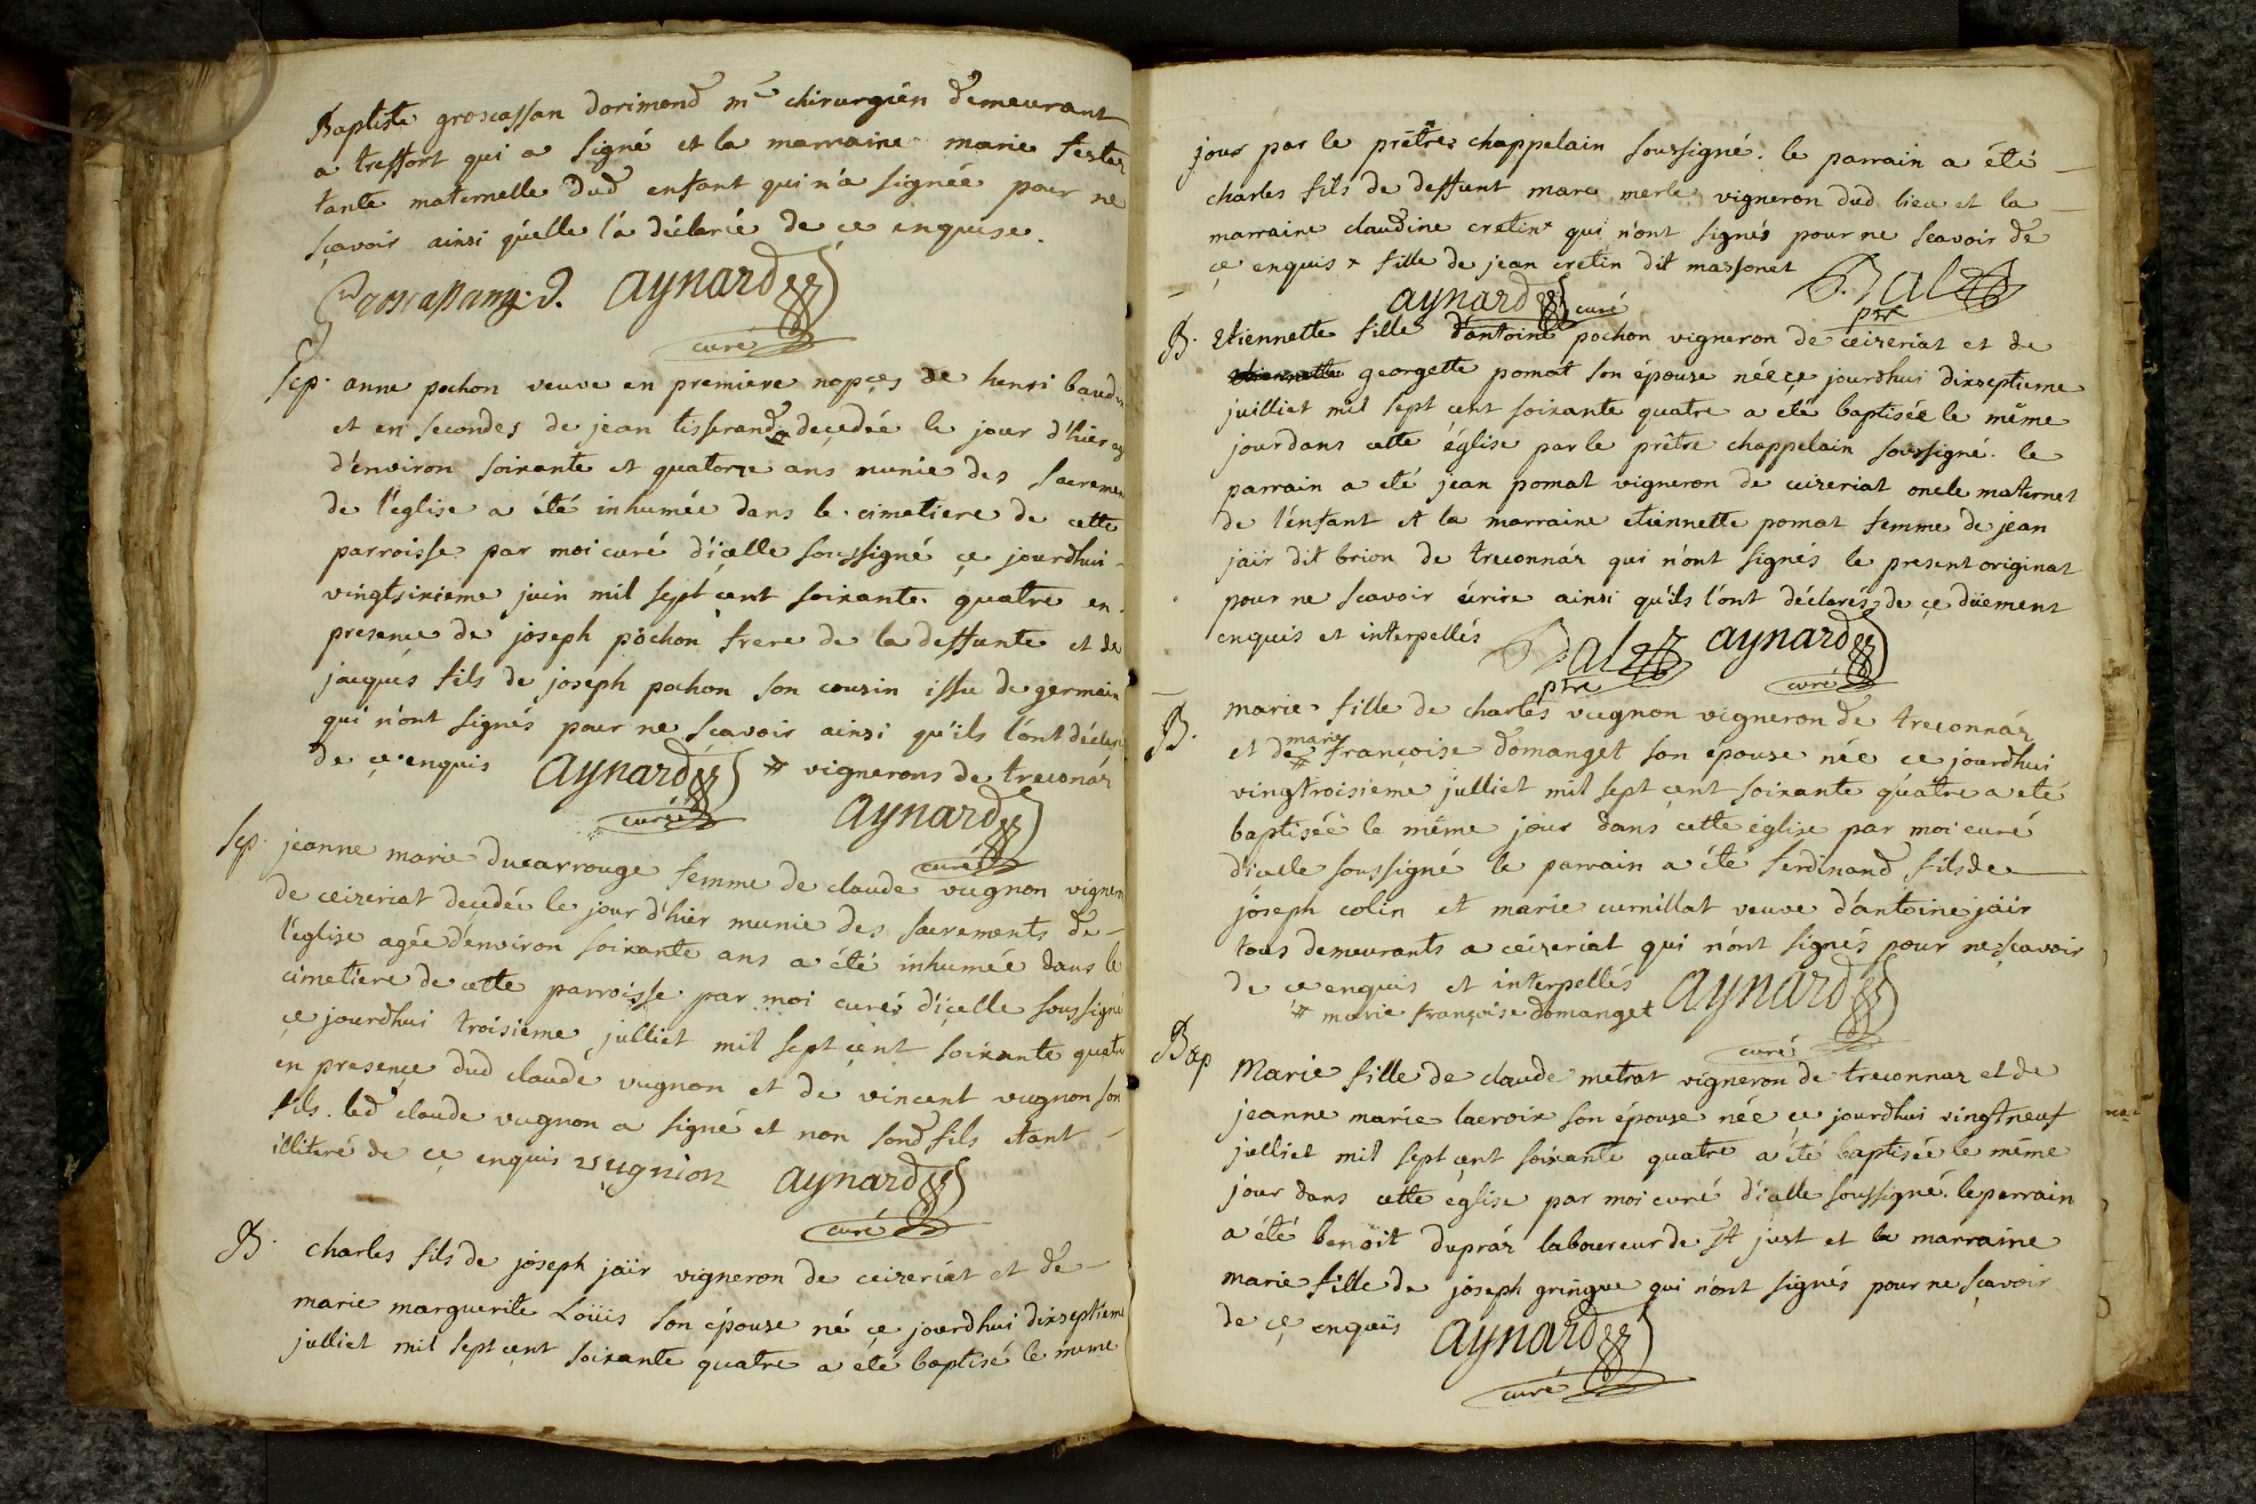 Baptiste groscassan dorimond me chirurgien demeurant
a treffort qui a signé et la marraine marie festaz
tante maternelle dud enfant qui n'a signée pour ne
sçavoir ainsi qu'elle l'a déclarée de ce enquise.
Groscassang. d. aynard
curé
Sep. anne pochon veuve en premiere nopçes de henri baudin
et en secondes de jean tisserand deçedée le jour d'hier agée
d'environ soixante et quatorze ans munie des sacremen
de l'église a été inhumée dans le cimetiere de cette
parroisse par moi curé d'içelle soussigné çe jourdhui
vingtsixieme juin mil sept çent soixante quatre en
presençe de joseph pochon frere de la deffunte et de
jacques fils de joseph pochon son cousin issu de germain
qui n'ont signés pour ne sçavoir ainsi qu'ils l'ont déclaré
de çe enquis aynard # vignerons de treconáz
curé aynard
curé
Sep. jeanne marie ducarrouge femme de claude vugnon vigneron
de ceizeriat deçedée le jour d'hier munie des sacrements de
l'eglise agée d'environ soixante ans a été inhumée dans le
cimetiere de cette parroisse par moi curé d'içelle soussigné
çe jourdhui troisieme julliet mil sept çent soixante quatre
en presençe dud claude vugnon et de vincent vugnon son
fils. led claude vugnon a signé et non sond fils etant
illiteré de çe enquis vugnion aynard
curé
B. charles fils de joseph jaïr vigneron de ceizeriat et de
marie marguerite Loüis son épouse né çe jourdhui dixseptieme
julliet mil sept çent soixante quatre a été baptisé le meme
jour par le prêtre chappelain soussigné. le parrain a été
charles fils de deffunt marc merle vigneron dud lieu et la
marraine claudine cretin x qui n'ont signés pour ne scavoir de
çe enquis x fille de jean cretin dit massonet
aynard curé ptre
B. etiennette fille d'antoine pochon vigneron de ceizeriat et de
georgette pomat son épouse née çe jourdhui dixseptieme
juilliet mil sept cent soixante quatre a eté baptisée le même
jour dans cette église par le prêtre chappelain soussigné. le
parrain a eté jean pomat vigneron de ceizeriat oncle maternel
de l'enfant et la marraine etiennette pomat femme de jean
jaïr dit brion de treconnáz qui n'ont signés le present original
pour ne scavoir écrire ainsi qu'ils l'ont déclarés de çe düement
enquis et interpellés aynard
ptre curé
B. marie fille de charles vugnon vigneron de treconnáz
et de marie # françoise domanget son épouse née ce jourdhui
vingtroisieme julliet mil sept çent soixante quatre a eté
baptisée le même jour dans cette église par moi curé
d'icelle soussigné le parrain a été ferdinand fils de
joseph colin et marie curnillat veuve d'antoine jaïr
tous demeurants a ceizeriat qui n'ont signés pour ne sçavoir
de ce enquis et interpellés aynard
# marie françoise domanget
curé
Bap Marie fille de claude metrat vigneron de treconnaz et de
jeanne marie lacroix son épouse née çe jourdhui vingtneuf
julliet mil sept çent soixante quatre a été baptisée le même
jour dans cette église par moi curé d'icelle soussigné. le parrain
a été benoit dupráz laboureur de St just et la marraine
marie fille de joseph gringue qui n'ont signés pour ne sçavoir
de çe enquis aynard
curé